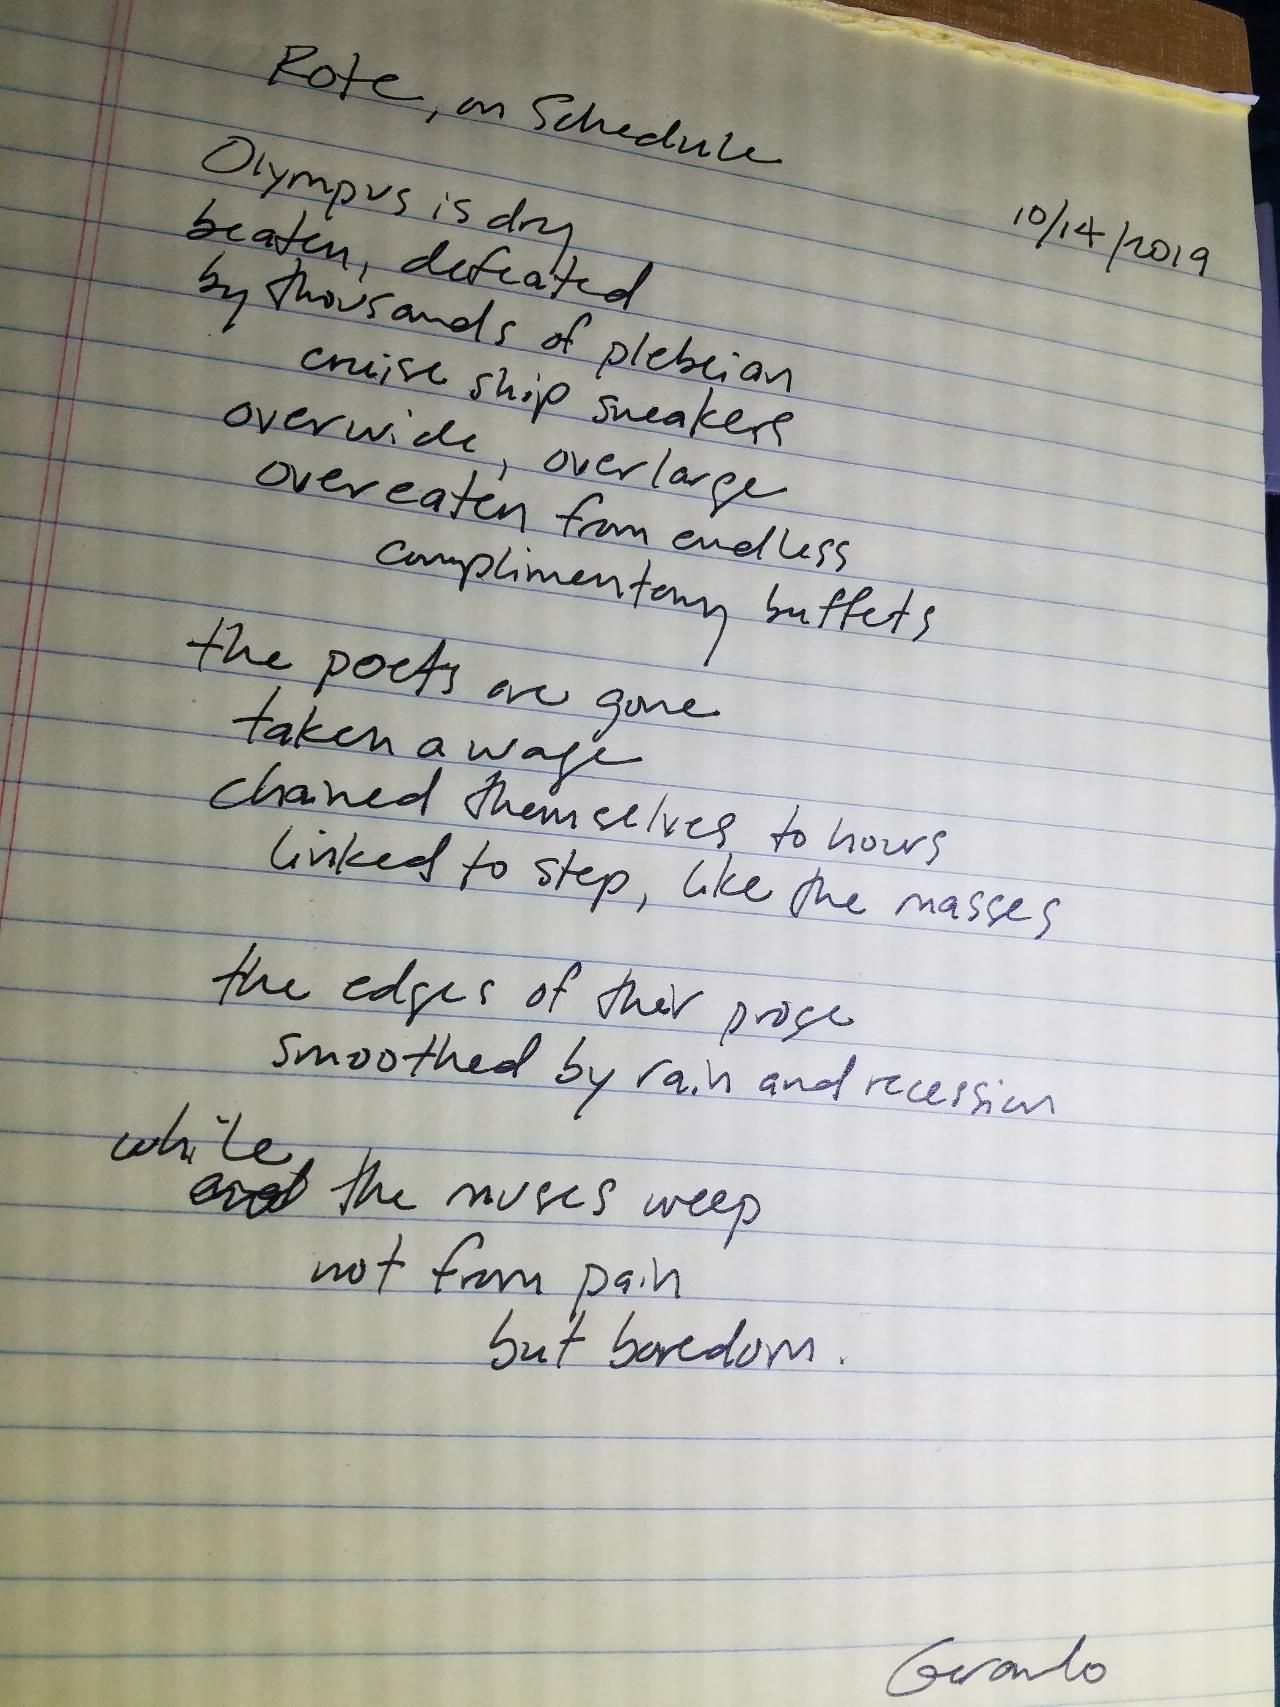 Rote, on Schedule
10/14/2019
Olympus is dry
beaten, defeated
by thousands of plebeian
cruise ship sneakers
overwide, overlarge
overeaten from endless
complimentary buffets
the poets are gone
taken a wage
chained themselves to hours
linked to step, like the masses
the edges of their prose
smoothed by rain and recession
while
and the muses weep
not from pain
but boredom.
Gerardo